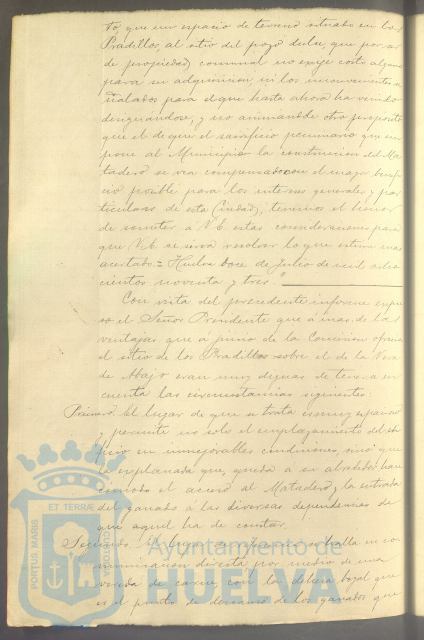 to, que un espacio de terreno situado en los
Pradillos, al sitio del pozo dulce, que por ser
de propiedad comunal no exije costo alguno
para su adquisicion, ni los inconvenientes se
ñalados para el que hasta ahora ha venido
designándose, y no animando otro proposito
que el de que el sacrificio pecuniario que im
pone al Municipio la construccion del Ma
tadero se vea compensado con el mayor benefi
cio posible para los intereses generales y par
ticulares de esta Ciudad, tenemos el honor
de someter a V.E. estas consideraciones para
que V.E. se sirva resolver lo que estime mas
acertado.= Huelva doce de Julio de mil ocho
cientos noventa y tres."
Con vista del precedente informe expu
so el Señor Presidente que á mas de las
ventajas que a juicio de la Comision ofrece
el sitio de los Pradillos sobre el de la Vega
de Abajo eran muy dignas de tenerse en
cuenta las circunstancias siguientes:
Primero. El lugar de que se trata es muy espacioso
y permite no solo el emplazamiento del edi
ficio en inmejorables condiciones, sino que
la explanada que queda a su alrededor hace
cómodo el acceso al Matadero, la entrada
del ganado a las diversas dependencias de
que aquel ha de constar.
Segundo. El lugar se halla en co
municacion directa por medio de una
vereda de carne, con la dehesa boyal que
es el punto de descanso de los ganados que
PORTUS MARIS ET TERRÆ CUSTODIA
Ayuntamiento de
HUELVA